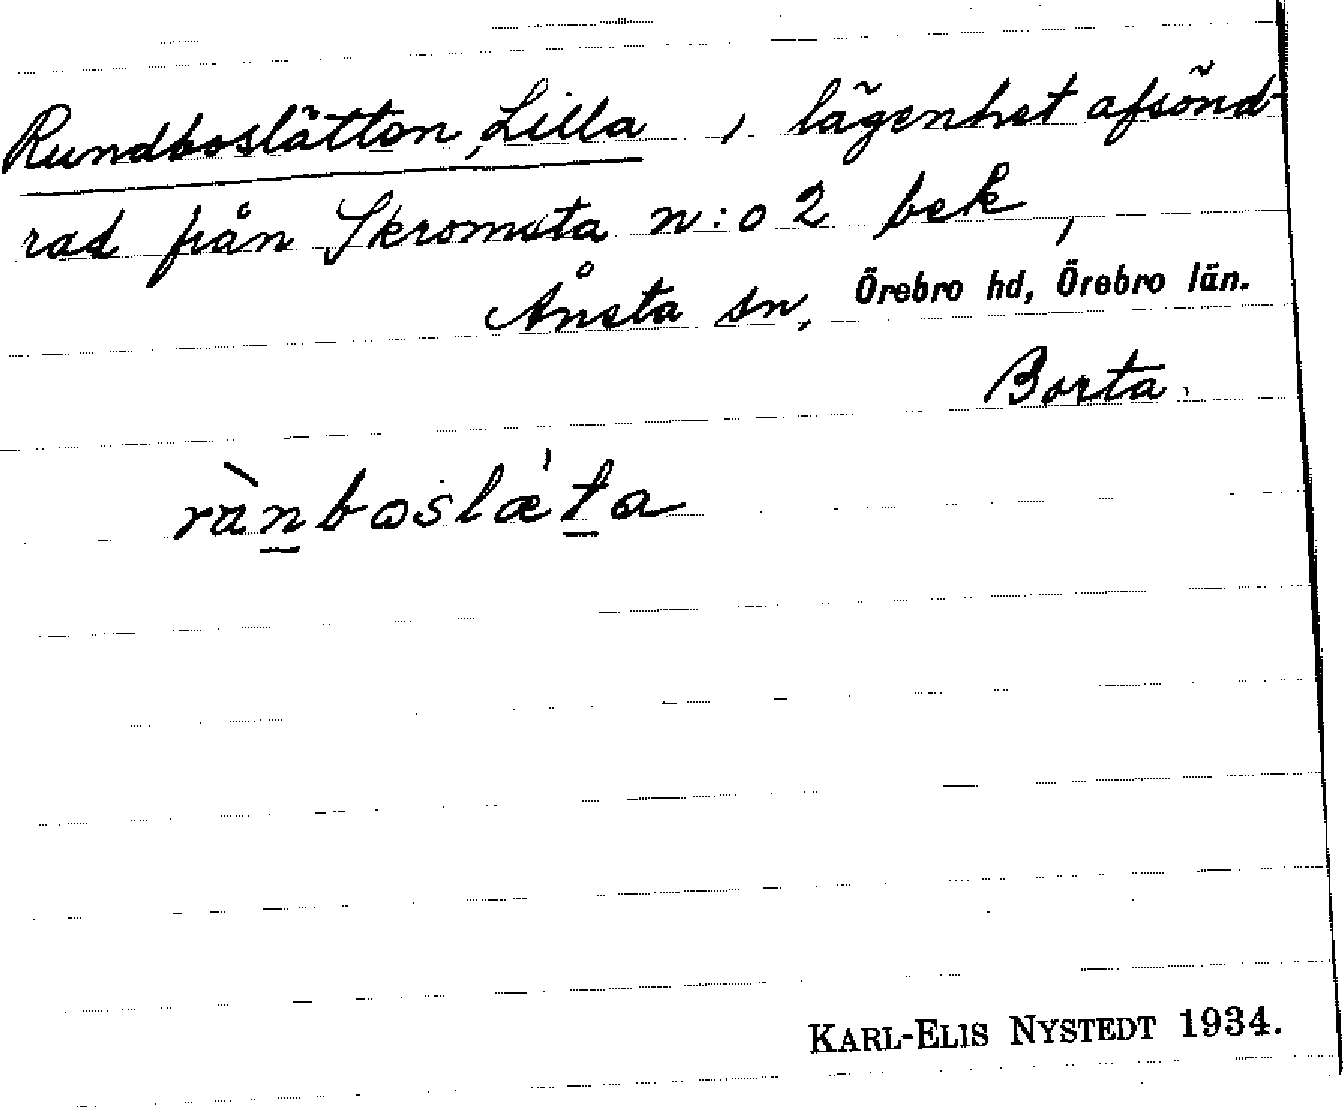 Rundboslätten, Lilla, lägenhet afsönd-
rad från Skromsta n:o 2 bek,
Ånsta sn, Örebro hd, Örebro län.
Borta.
rànboslæ̀ta
KARL-ELIS NYSTEDT 1934.